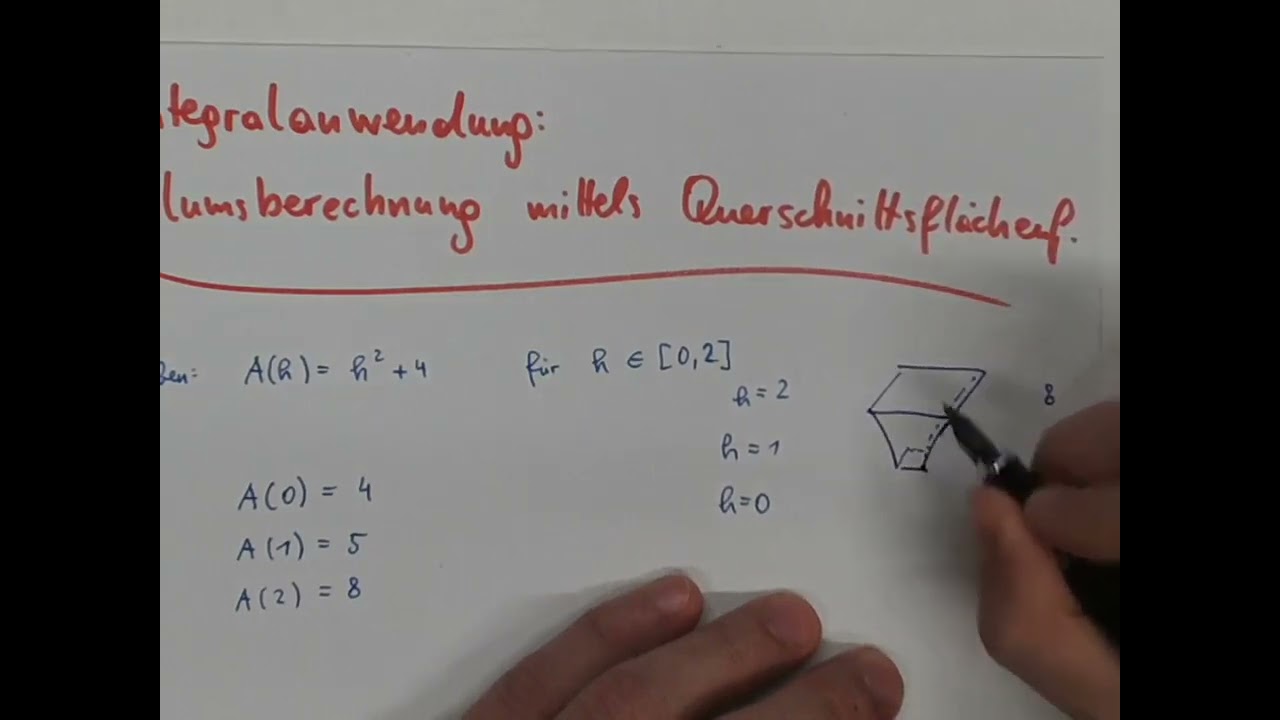 ntegralanwendung:
lumsberechnung mittels Querschnittsflächenf.
ben: A(h) = h² + 4 für h ∈ [0,2]
h = 2 8
h = 1
h = 0
A(0) = 4
A(1) = 5
A(2) = 8